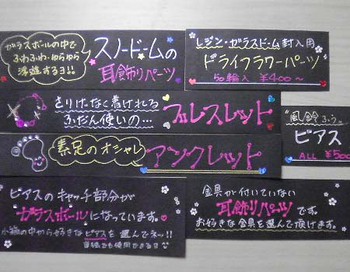 ガラスボールの中で
ふわふわ・ゆらゆら
浮遊するヨ!!
スノードームの
耳飾りパーツ
レジン・ガラスドーム封入用
ドライフラワーパーツ
50輪入 ¥400〜
さりげなく着けれる
ふだん使いの…
ブレスレット
素足のオシャレ
アンクレット
風鈴ふう。
ピアス
ALL ¥500
ピアスのキャッチ部分が
ガラスボールになっています。
小箱の中からお好きな
ピアスを選んでネ〜!!
金具が付いていない
耳飾りパーツです。
お好きな金具を選んで頂けます。